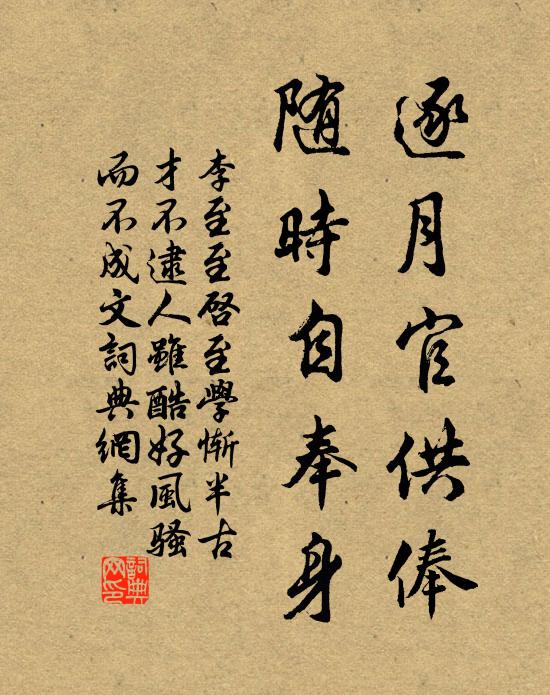 逐月官供俸
随時自奉身
李至至啓至學慚半古
才不逮人雖酷好風騷
而不成文詞典網集
詞典网印